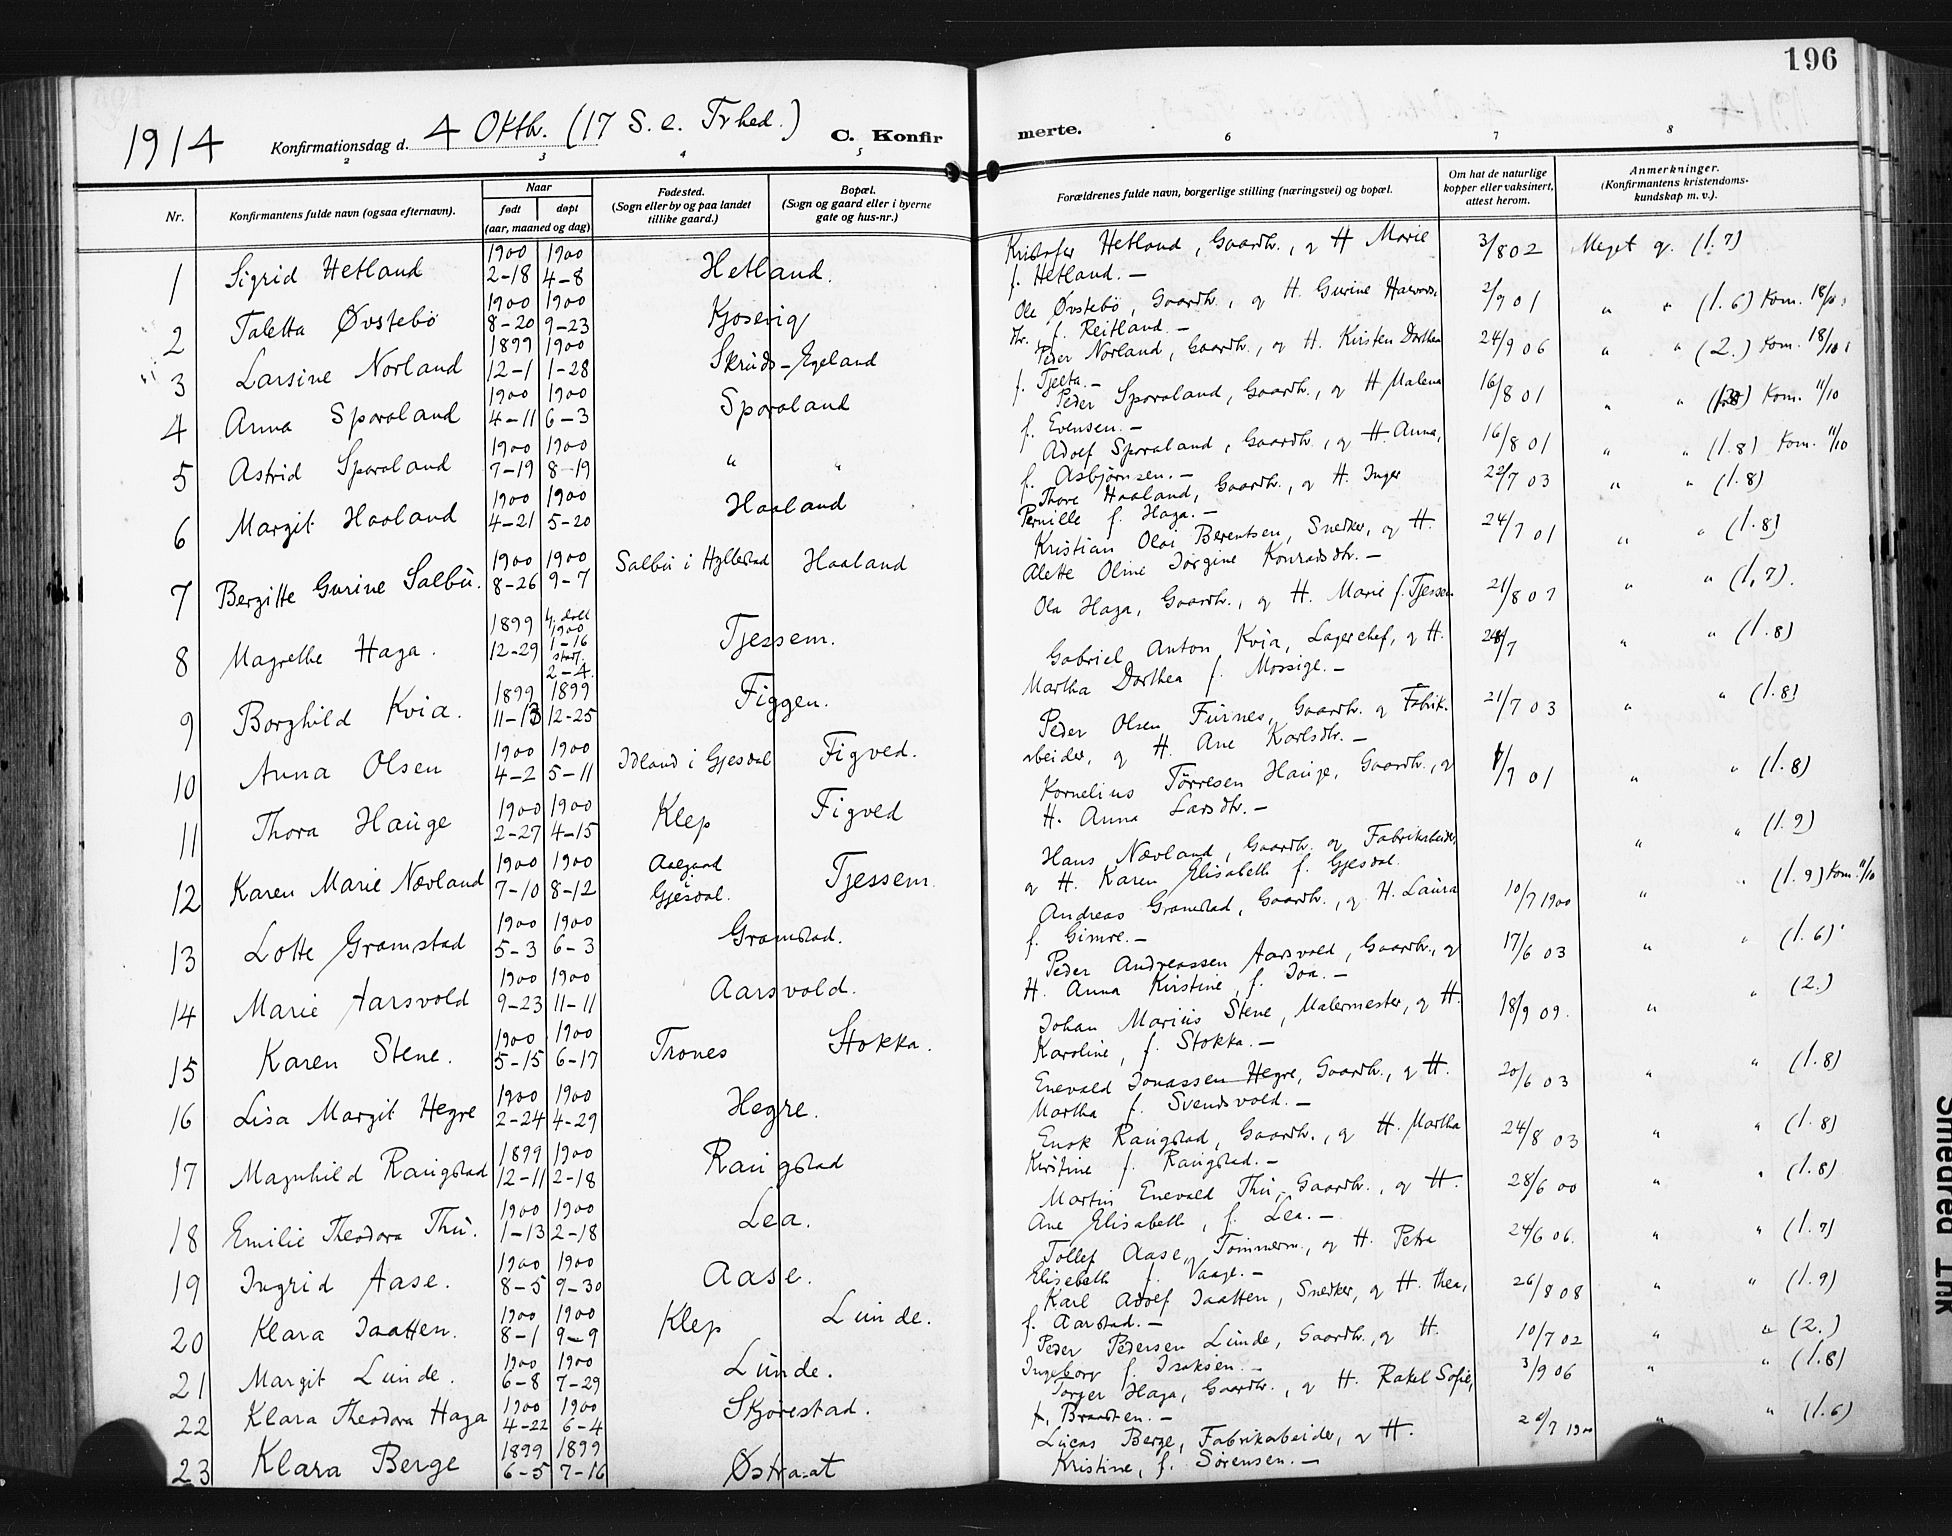 196
1914 Konfirmationsdag d. 4 Oktb. (17 S. e. Trhed.) C. Konfirmerte.
2 3 4 5 6 7 8
Nr. Konfirmantens fulde navn (ogsaa efternavn). Naar født døpt (aar, maaned og dag) Fødested. (Sogn eller by og paa landet tillike gaard.) Bopæl. (Sogn og gaard eller i byerne gate og hus-nr.) Forældrenes fulde navn, borgerlige stilling (næringsvei) og bopæl. Om hat de naturlige kopper eller vaksinert, attest herom. Anmerkninger. (Konfirmantens kristendomskundskap m. v.).
1 Sigrid Hetland 1900 2-18 1900 4-8 Hetland. Kristofer Hetland, Gaardb., og H Marie f. Hetland. — 3/8 02 Meget g. (1.7)
2 Taletta Øvstebø 1900 8-20 1900 9-23 Kjosevig Ole Øvstebø, Gaardb., og H. Gurine f. Reitland. — 2/9 01 " " (1.6) Kom. 18/10
3 Larsine Norland 1899 12-1 1900 1-28 Skruds-Egeland Peder Norland, Gaardb., og H. Kirsten Dorthea f. Tjelta. — 24/9 06 " " (2.) Kom. 18/10
4 Anna Sporaland 1900 4-11 1900 6-3 Sporaland Peder Sporaland, Gaardb., og H Malena f. Evensen. — 16/8 01 " " Kom. 11/10
5 Astrid Sporaland 1900 7-19 1900 8-19 " " Adolf Sporaland, Gaardb., og H. Anna, f. Asbjørnsen. — 16/8 01 " " (1.8) Kom. 11/10
6 Margit Haaland 1900 4-21 1900 5-20 Haaland Thore Haaland, Gaardb., og H. Inger Pernille f. Haga. — 22/7 03 " " (1.8)
7 Bergitte Gurine Salbu. 1900 8-26 1900 9-7 Salbu i Hyllestad Haaland Kristian Olai Berentsen, Snedker, og H. Alette Oline Jørgine Konradsdtr. — 24/7 01 " " (1.8)
8 Magrethe Haga. 1899 12-29 hj. døbt 1900 1-16 stadf. 2-4. Tjessem. Ola Haga, Gaardb., og H. Marie f. Tjessem 21/8 07 " " (1.7).
9 Borghild Kvia. 1899 11-13 1899 12-25 Figgen. Gabriel Anton Kvia, Lagerchef, og H. Martha Dorthea f. Mossige. — " " (1.8)
10 Anna Olsen 1900 4-2 1900 5-11 Idland i Gjesdal Figved. Peder Olsen Furnes, Gaardb. og Fabrikarbeider, og H. Ane Karlsdtr. — 21/7 03 " " (1.8)
11 Thora Hauge 1900 2-27 1900 4-15 Klep Figved Kornelius Tørresen Hauge, Gaardb., og H. Anna Larsdtr. — /7 01 " " (1.8)
12 Karen Marie Nævland 1900 7-10 1900 8-12 Aalgaard Gjesdal. Tjessem Hans Nævland, Gaardb. og Fabrikarbeider, og H. Karen Elisabeth f. Gjesdal. " " (1.9)
13 Lotte Gramstad 1900 5-3 1900 6-3 Gramstad. Andreas Gramstad, Gaardb., og H. Laura f. Gimre. — 10/7 1900 " " (1.9) Kom. 11/10
14 Marie Aarsvold 1900 9-23 1900 11-11 Aarsvold. Peder Andreassen Aarsvold, Gaardb., og H. Anna Kirstine, f. Joa. — 17/6 03 " " (1.6)
15 Karen Stene. 1900 5-15 1900 6-17 Trones Stokka. Johan Marius Stene, Malermester, og H. Karoline, f. Stokka. — 18/9 09. " " (2.)
16 Lisa Margit Hegre 1900 2-24 1900 4-29 Hegre. Enevald Jonassen Hegre, Gaardb., og H. Martha f. Svendsvold. — 20/6 03 " " (1.8)
17 Magnhild Raugstad 1899 12-11 1900 2-18 Raugstad Enok Raugstad, Gaardb., og H. Martha Kirstine f. Raugstad. — 24/8 03 " " (1.8)
18 Emilie Theodora Thu. 1900 1-13 1900 2-18 Lea. Martin Enevald Thu, Gaardb., og H. Ane Elisabeth, f. Lea. — 28/6 00 " " (1.8)
19 Ingrid Aase. 1900 8-5 1900 9-30 Aase. Tollef Aase, Tømmerm., og H. Petra Elisabeth f. Vaage. — 24/6 06. " " (1.7)
20 Klara Jaatten. 1900 8-1 1900 9-9 Klep Lunde. Karl Adolf Jaatten, Snedker, og H. Thea, f. Aarstad. — 26/8 08 " " (1.9)
21 Margit Lunde. 1900 6-8 1900 7-29 Lunde. Peder Pedersen Lunde, Gaardb., og H. Ingeborg f. Isaksen. — 10/7 02 " " (2.)
22 Klara Theodora Haga 1900 4-22 1900 6-4 Skjørestad. Torger Haga, Gaardb., og H. Rakel Sofie, f. Braadten. — 3/9 06 " " (1.8)
23 Klara Berge 1899 6-5 1899 7-16 Østraat Lucas Berge, Fabrikarbeider, og H. Kristine, f. Sørensen. — 26/7 1900 " " (1.6)
Smeared Ink